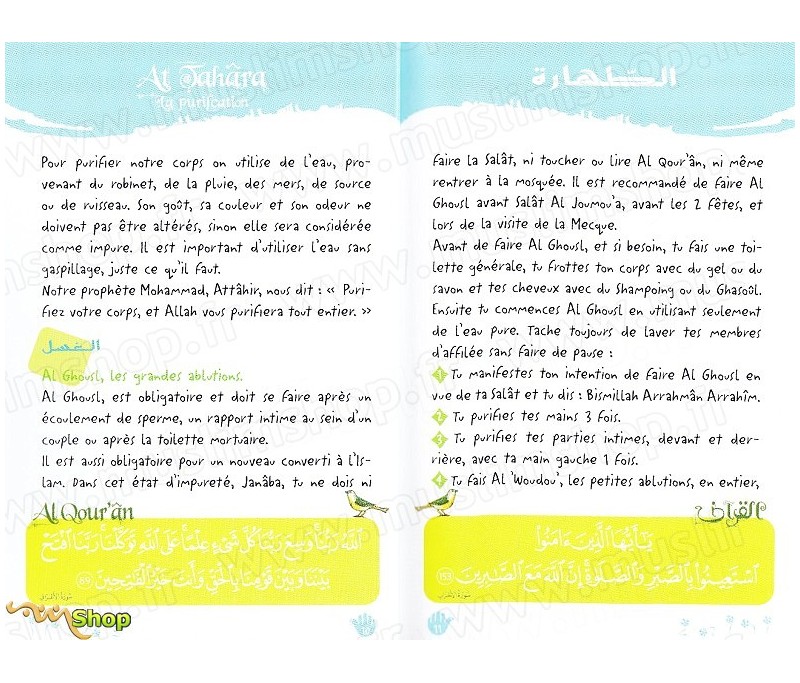 At Tahâra
La purification
Pour purifier notre corps on utilise de l'eau, pro-
venant du robinet, de la pluie, des mers, de source
ou de ruisseau. Son goût, sa couleur et son odeur ne
doivent pas être altérés, sinon elle sera considérée
comme impure. Il est important d'utiliser l'eau sans
gaspillage, juste ce qu'il faut.
Notre prophète Mohammad, Attâhir, nous dit : « Puri-
fiez votre corps, et Allah vous purifiera tout entier. »
الغسل
Al Ghousl, les grandes ablutions.
Al Ghousl, est obligatoire et doit se faire après un
écoulement de sperme, un rapport intime au sein d'un
couple ou après la toilette mortuaire.
Il est aussi obligatoire pour un nouveau converti à l'Is-
lam. Dans cet état d'impureté, Janâba, tu ne dois ni
Al Qour'ân
اللَّهُ رَبُّنَا وَسِعَ رَبُّنَا كُلَّ شَيْءٍ عِلْمًا عَلَى اللَّهِ تَوَكَّلْنَا رَبَّنَا افْتَحْ
بَيْنَنَا وَبَيْنَ قَوْمِنَا بِالْحَقِّ وَأَنتَ خَيْرُ الْفَاتِحِينَ ٨٩
Shop
الطهارة
faire la Salât, ni toucher ou lire Al Qour'ân, ni même
rentrer à la mosquée. Il est recommandé de faire Al
Ghousl avant Salât Al Joumou'a, avant les 2 fêtes, et
lors de la visite de la Mecque.
Avant de faire Al Ghousl, et si besoin, tu fais une toi-
lette générale, tu frottes ton corps avec du gel ou du
savon et tes cheveux avec du Shampoing ou du Ghasoûl.
Ensuite tu commences Al Ghousl en utilisant seulement
de l'eau pure. Tache toujours de laver tes membres
d'affilée sans faire de pause :
1 Tu manifestes ton intention de faire Al Ghousl en
vue de ta Salât et tu dis : Bismillah Arrahmân Arrahîm.
2 Tu purifies tes mains 3 fois.
3 Tu purifies tes parties intimes, devant et der-
rière, avec ta main gauche 1 fois.
4 Tu fais Al 'Woudou', les petites ablutions, en entier,
القرآن
يَا أَيُّهَا الَّذِينَ ءَامَنُوا
اسْتَعِينُوا بِالصَّبْرِ وَالصَّلَوٰةِ إِنَّ اللَّهَ مَعَ الصَّابِرِينَ ١٥٣
11
www.muslimshop.fr